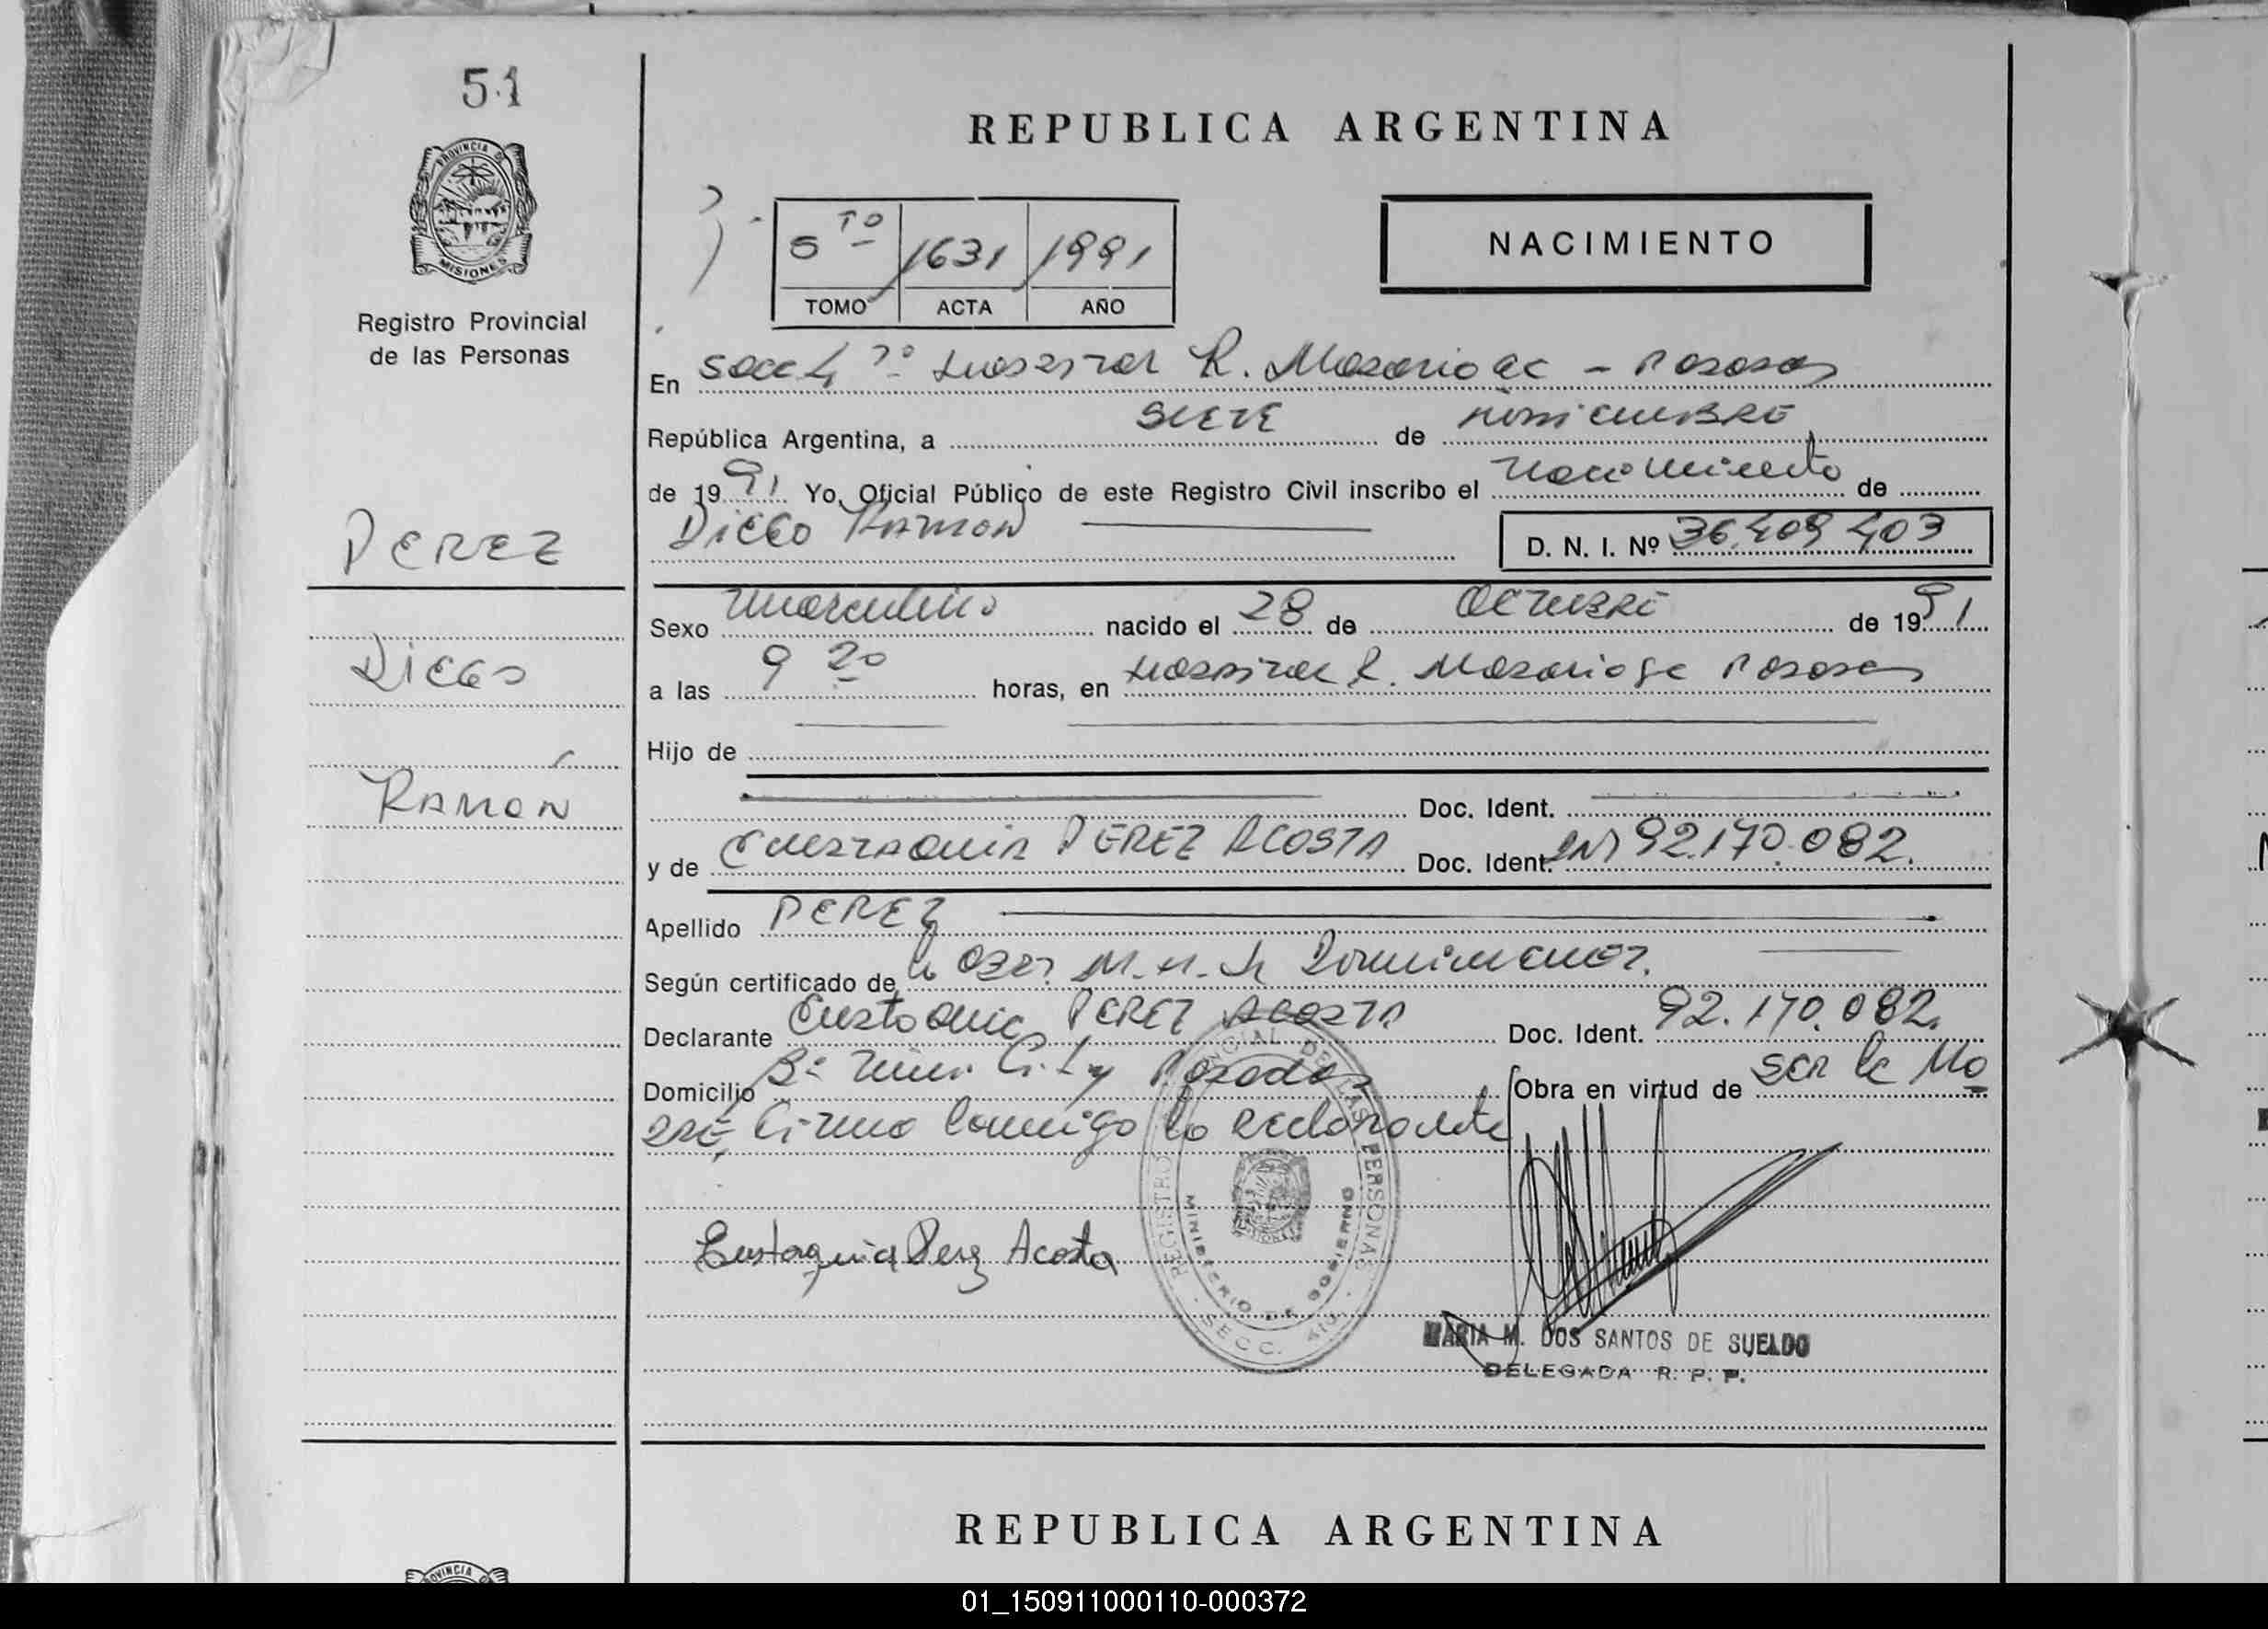 51
REPUBLICA ARGENTINA
PROVINCIA DE
MISIONES
Registro Provincial
de las Personas
5 TO 1631 1991
TOMO ACTA AÑO
NACIMIENTO
En Secc 4 Hospital R. Madariaga - Posadas
República Argentina, a SIETE de
de 1991 Yo, Oficial Público de este Registro Civil inscribo el nacimiento de
DIEGO RAMON D. N. I. Nº 36.409.403
PEREZ
DIEGO
RAMÓN
Sexo masculino nacido el 28 de OCTUBRE de 1991
a las 9 20 horas, en Hospital R. Madariaga Posadas
Hijo de
Doc. Ident.
y de EUSTAQUIA PEREZ ACOSTA Doc. Ident. 92.170.082.
Apellido PEREZ
Según certificado de la OBST. M.
Declarante Eustaquia PEREZ ACOSTA Doc. Ident. 92.170.082.
Domicilio Bº Posadas Obra en virtud de SER la Ma
DRE, Firma conmigo la declarante
Eustaquia Perez Acosta
REGISTRO PROVINCIAL DE LAS PERSONAS
MINISTERIO DE GOBIERNO
SECC. 4TO.
MARIA M. DOS SANTOS DE SUELDO
DELEGADA R. P. P.
REPUBLICA ARGENTINA
PROVINCIA
01_150911000110-000372